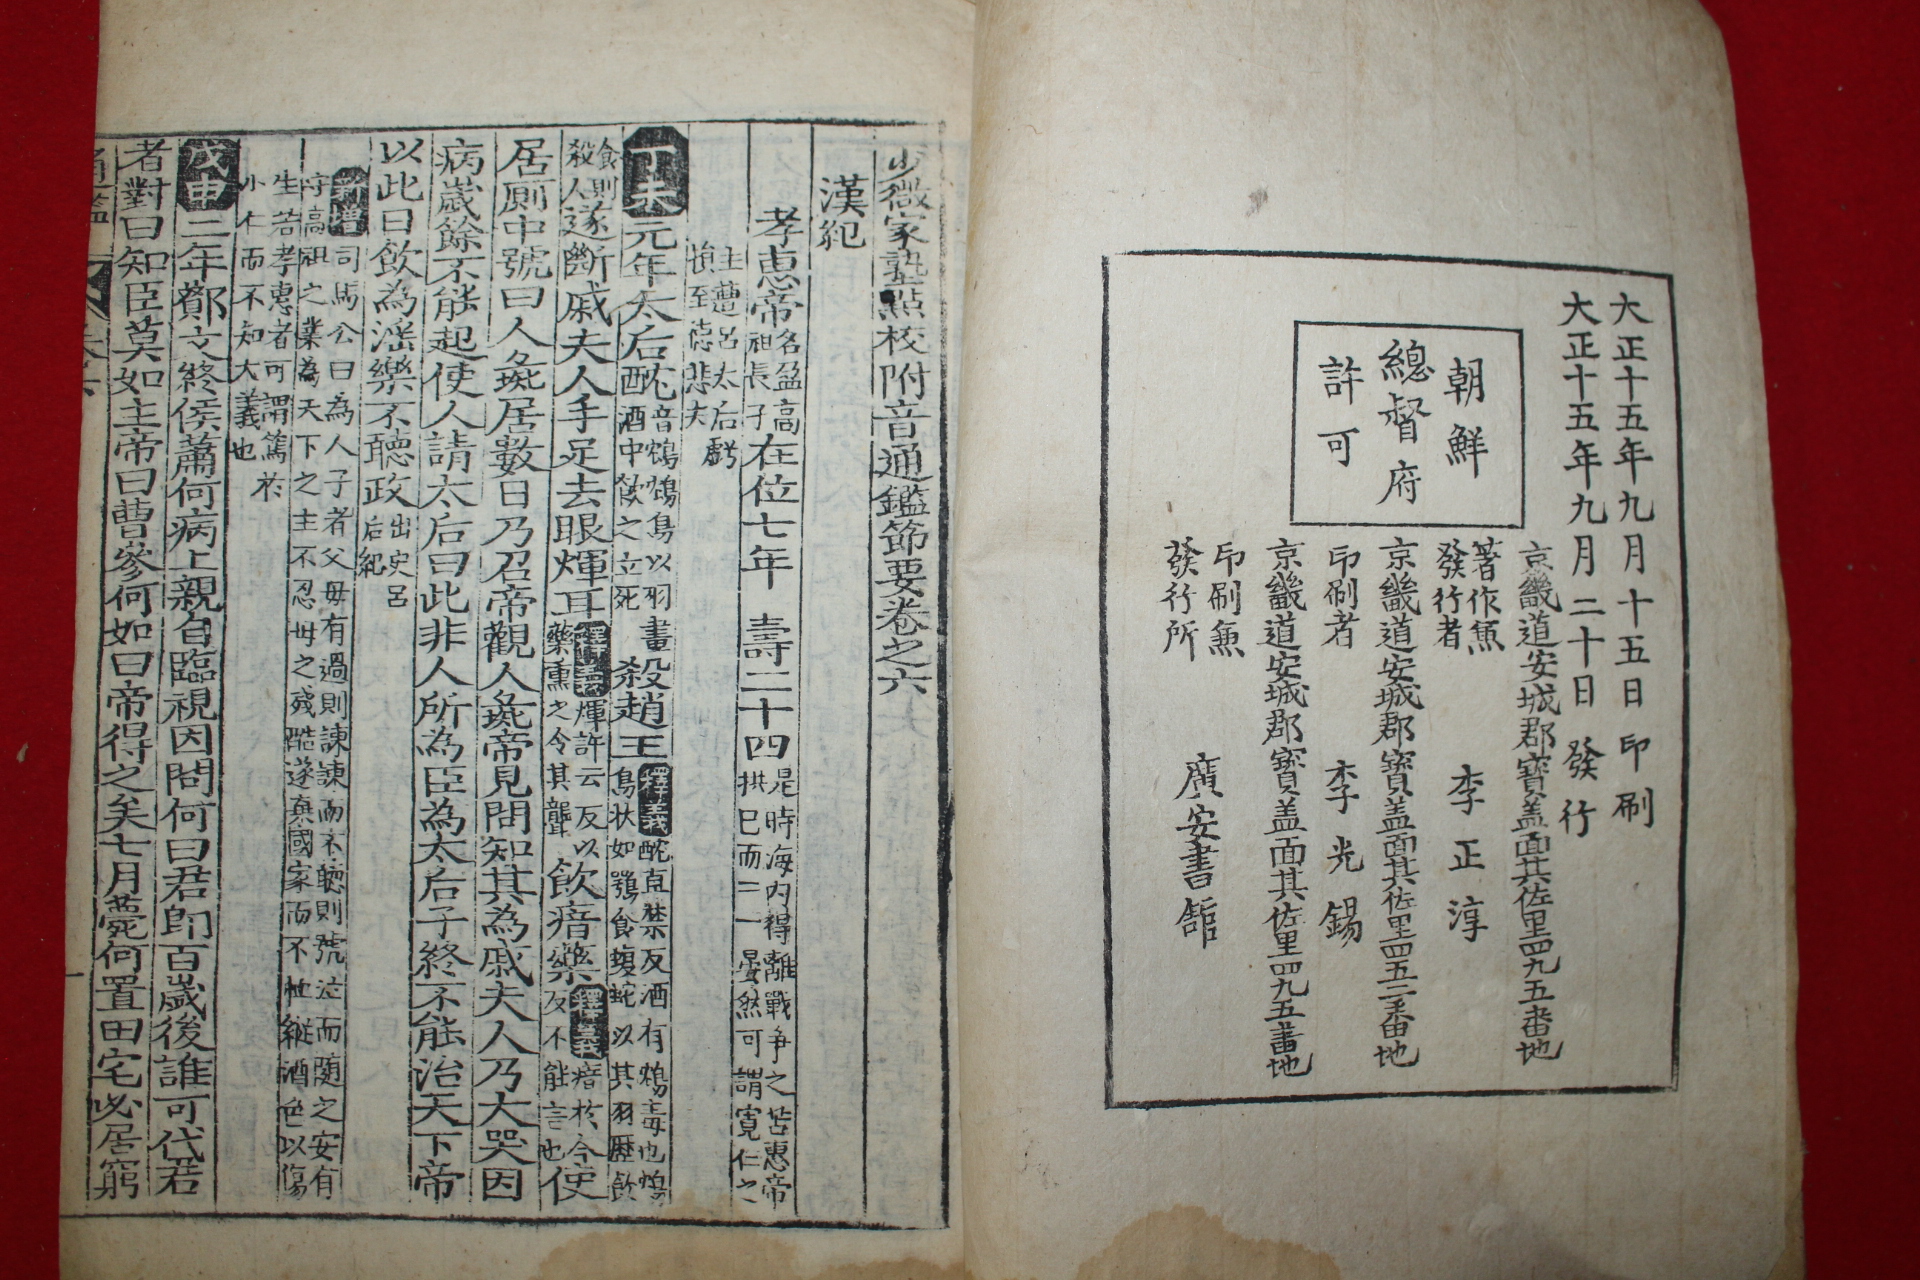 大正十五年九月十五日 印刷
大正十五年九月二十日 發行
朝鮮
總督府
許可
京畿道安城郡寶盖面其佐里四九五番地
著作兼
發行者 李正淳
京畿道安城郡寶盖面其佐里四五二番地
印刷者 李光錫
京畿道安城郡寶盖面其佐里四九五番地
印刷兼
發行所 廣安書舘
少微家塾點校附音通鑑節要卷之六
漢紀
孝惠帝 名盈高祖長子 在位七年 壽二十四 是時海內得離戰爭之苦惠帝拱己而已 晏然可謂寬仁之
主遭呂太后虧損至德悲夫
丁未 元年太后酖 音鴆鴆鳥以羽畫酒中飮之立死 殺趙王 釋義 酖直禁反酒有鴆毒也鴆鳥狀如鶚食蝮蛇以其羽歷飮
食則殺人 遂斷戚夫人手足去眼煇耳 釋義 煇許云反以藥熏之令其聾 飮瘖藥 釋義 瘖於今反不能言也 使
居厠中號曰人彘居數日乃召帝觀人彘帝見問知其爲戚夫人乃大哭因
病歲餘不能起使人請太后曰此非人所為臣為太后子終不能治天下帝
以此日飮為淫樂不聽政 出史呂后紀
新增 司馬公曰為人子者父母有過則諫諫而不聽則號泣而隨之安有
守高祖之業為天下之主不忍母之殘酷遂棄國家而不恤縱酒色以傷
生若孝惠者可謂篤於
小仁而不知大義也
戊申 二年酇文終侯蕭何病上親自臨視因問何曰君卽百歲後誰可代君
者對曰知臣莫如主帝曰曹參何如曰帝得之矣七月薨何置田宅必居窮
通鑑 卷六 一